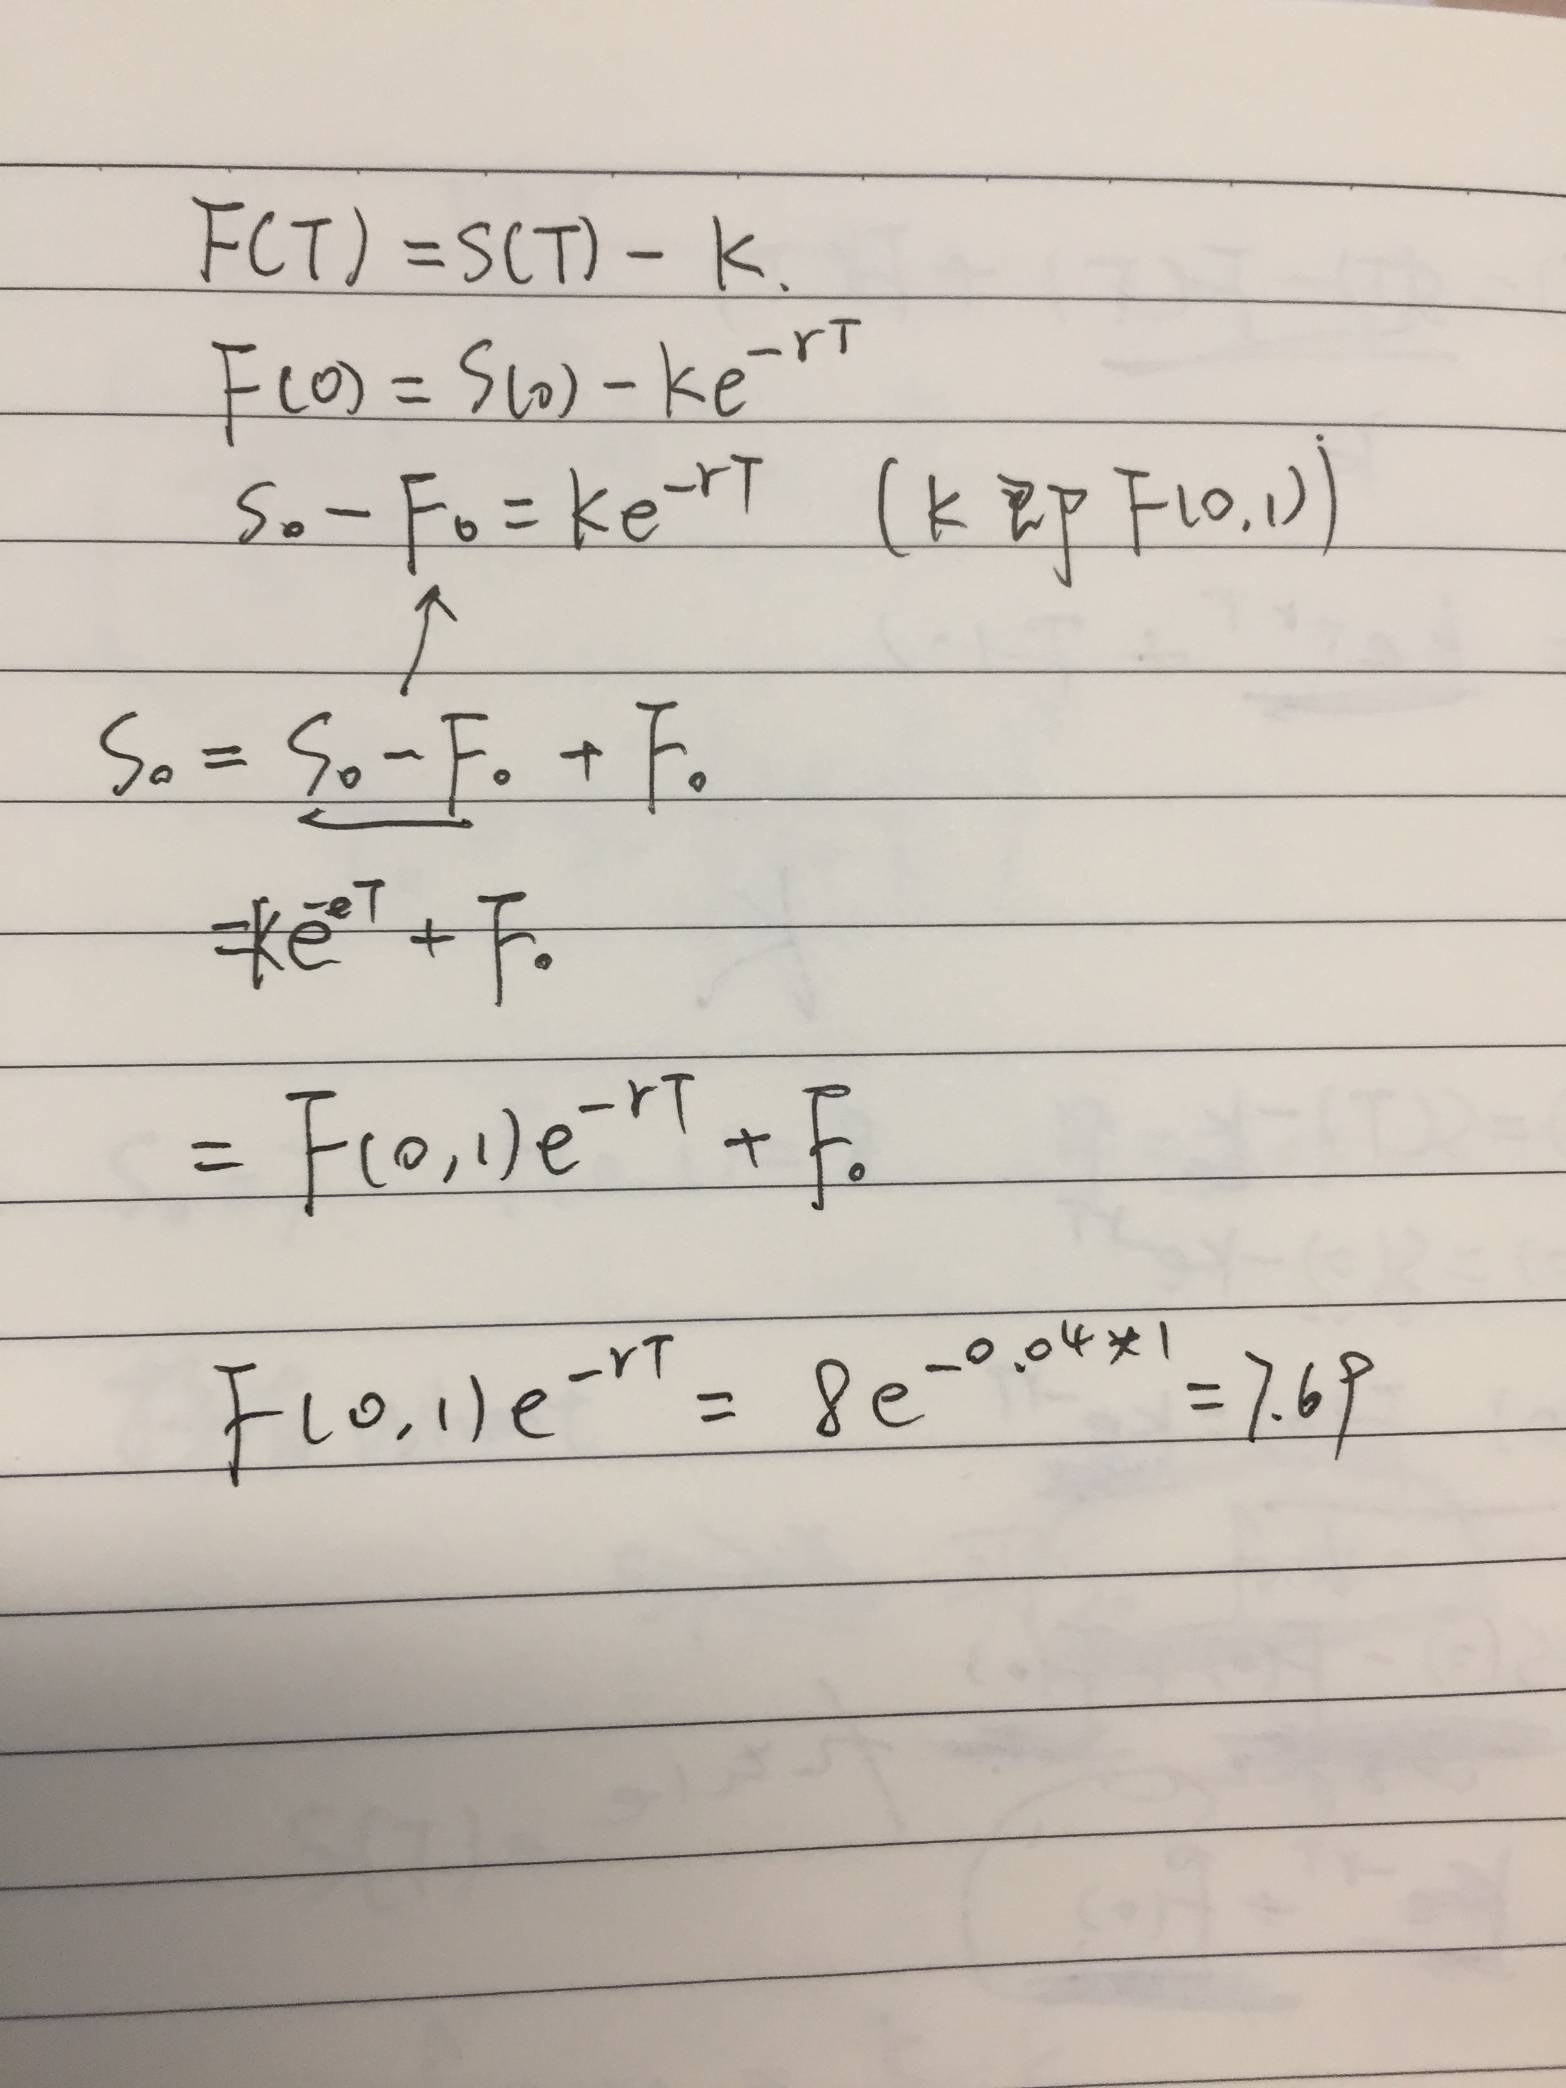 F(T) = S(T) - K.
F(0) = S(0) - Ke^{-rT}
S₀ - F₀ = Ke^{-rT} (K 即 F(0,1))
S₀ = S₀ - F₀ + F₀
= Ke^{-eT} + F₀
= F(0,1)e^{-rT} + F₀
F(0,1)e^{-rT} = 8e^{-0.04*1} = 7.69